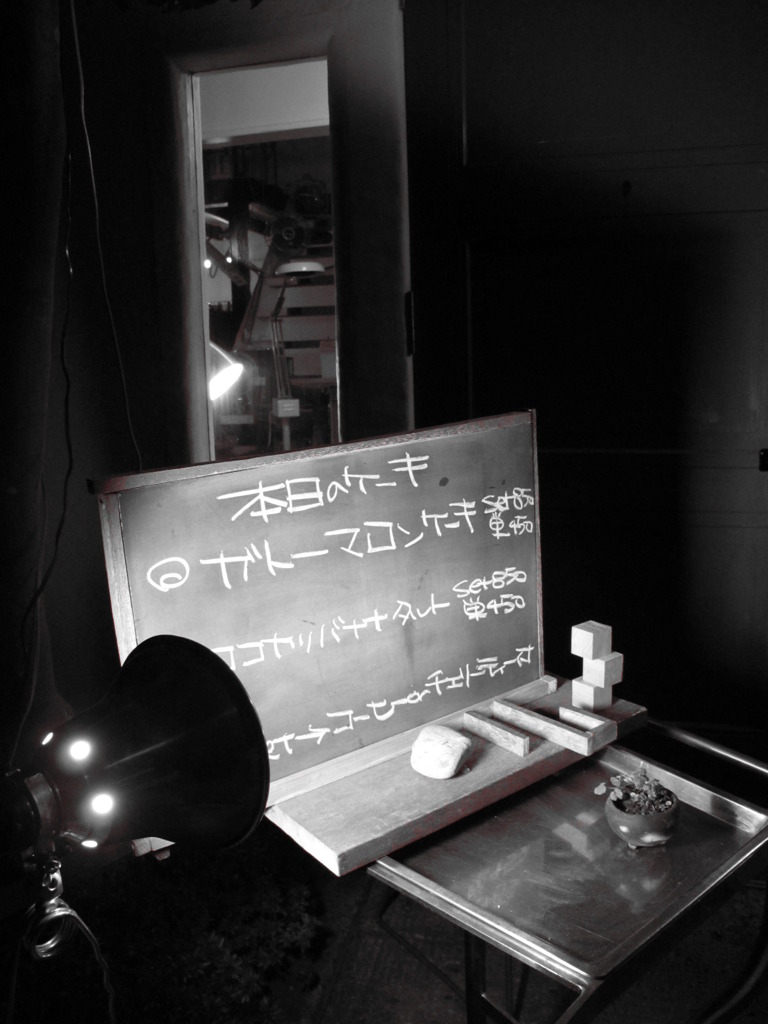 本日のケーキ
◎ ガトーマロンケーキ set850 単450
ココナッツバナナタルト set850 単450
コーヒーorチェコティー